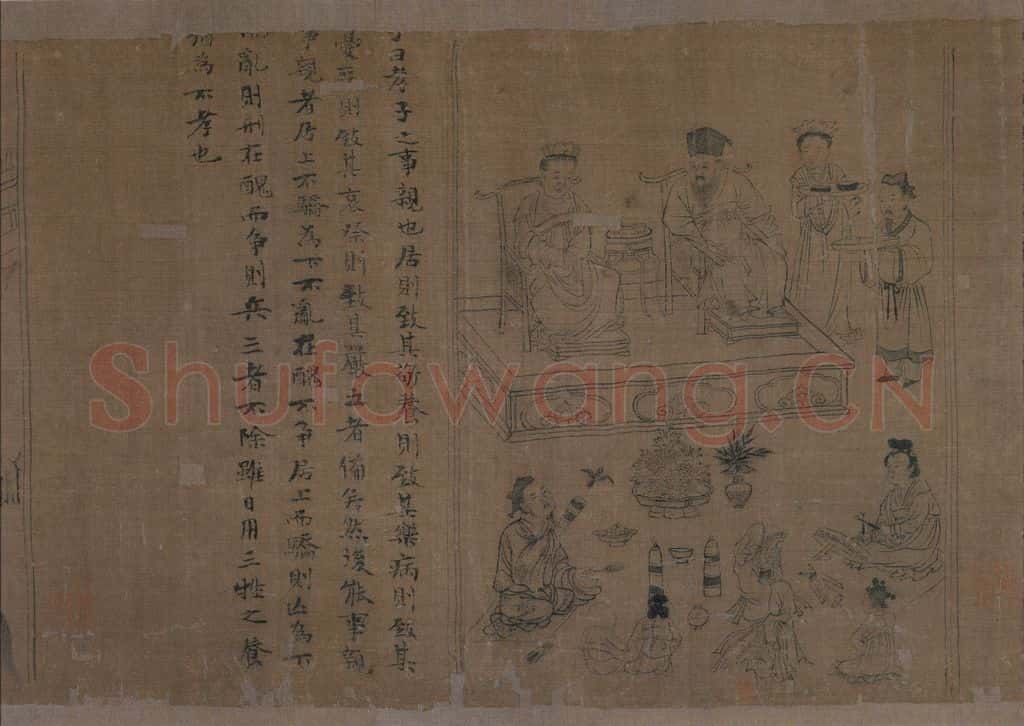 子曰孝子之事親也居則致其敬養則致其樂病則致其
憂喪則致其哀祭則致其嚴五者備矣然後能事親
事親者居上不驕為下不亂在醜不争居上而驕則亡為下
而亂則刑在醜而争則兵三者不除雖日用三牲之養
猶為不孝也
Shufawang.CN